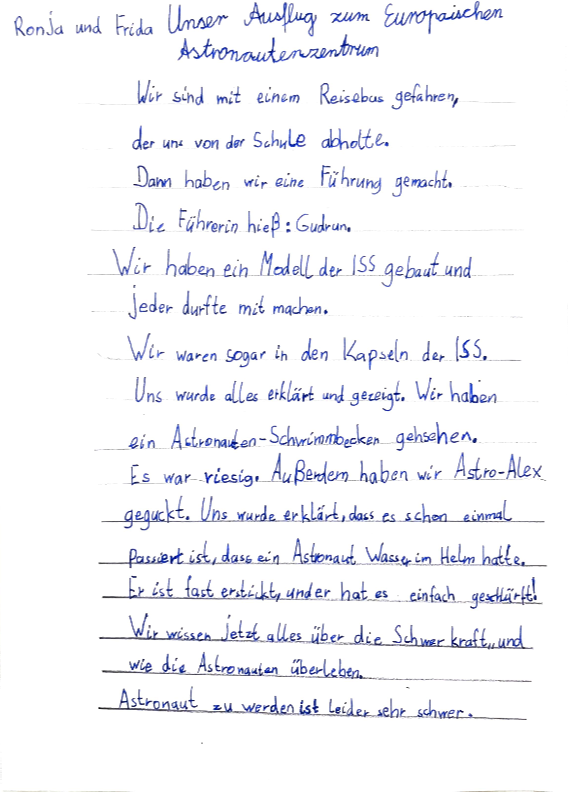 Ronja und Frida Unser Ausflug zum Europaischen
Astronautenzentrum
Wir sind mit einem Reisebus gefahren,
der uns von der Schule abholte.
Dann haben wir eine Führung gemacht.
Die Führerin hieß: Gudrun.
Wir haben ein Modell der ISS gebaut und
jeder durfte mit machen.
Wir waren sogar in den Kapseln der ISS.
Uns wurde alles erklärt und gezeigt. Wir haben
ein Astronauten-Schwimmbecken gehsehen.
Es war riesig. Außerdem haben wir Astro-Alex
geguckt. Uns wurde erklärt, dass es schon einmal
passiert ist, dass ein Astronaut Wasser im Helm hatte.
Er ist fast erstickt, under hat es einfach geschlürft!
Wir wissen jetzt alles über die Schwerkraft,, und
wie die Astronauten überleben.
Astronaut zu werden ist leider sehr schwer.